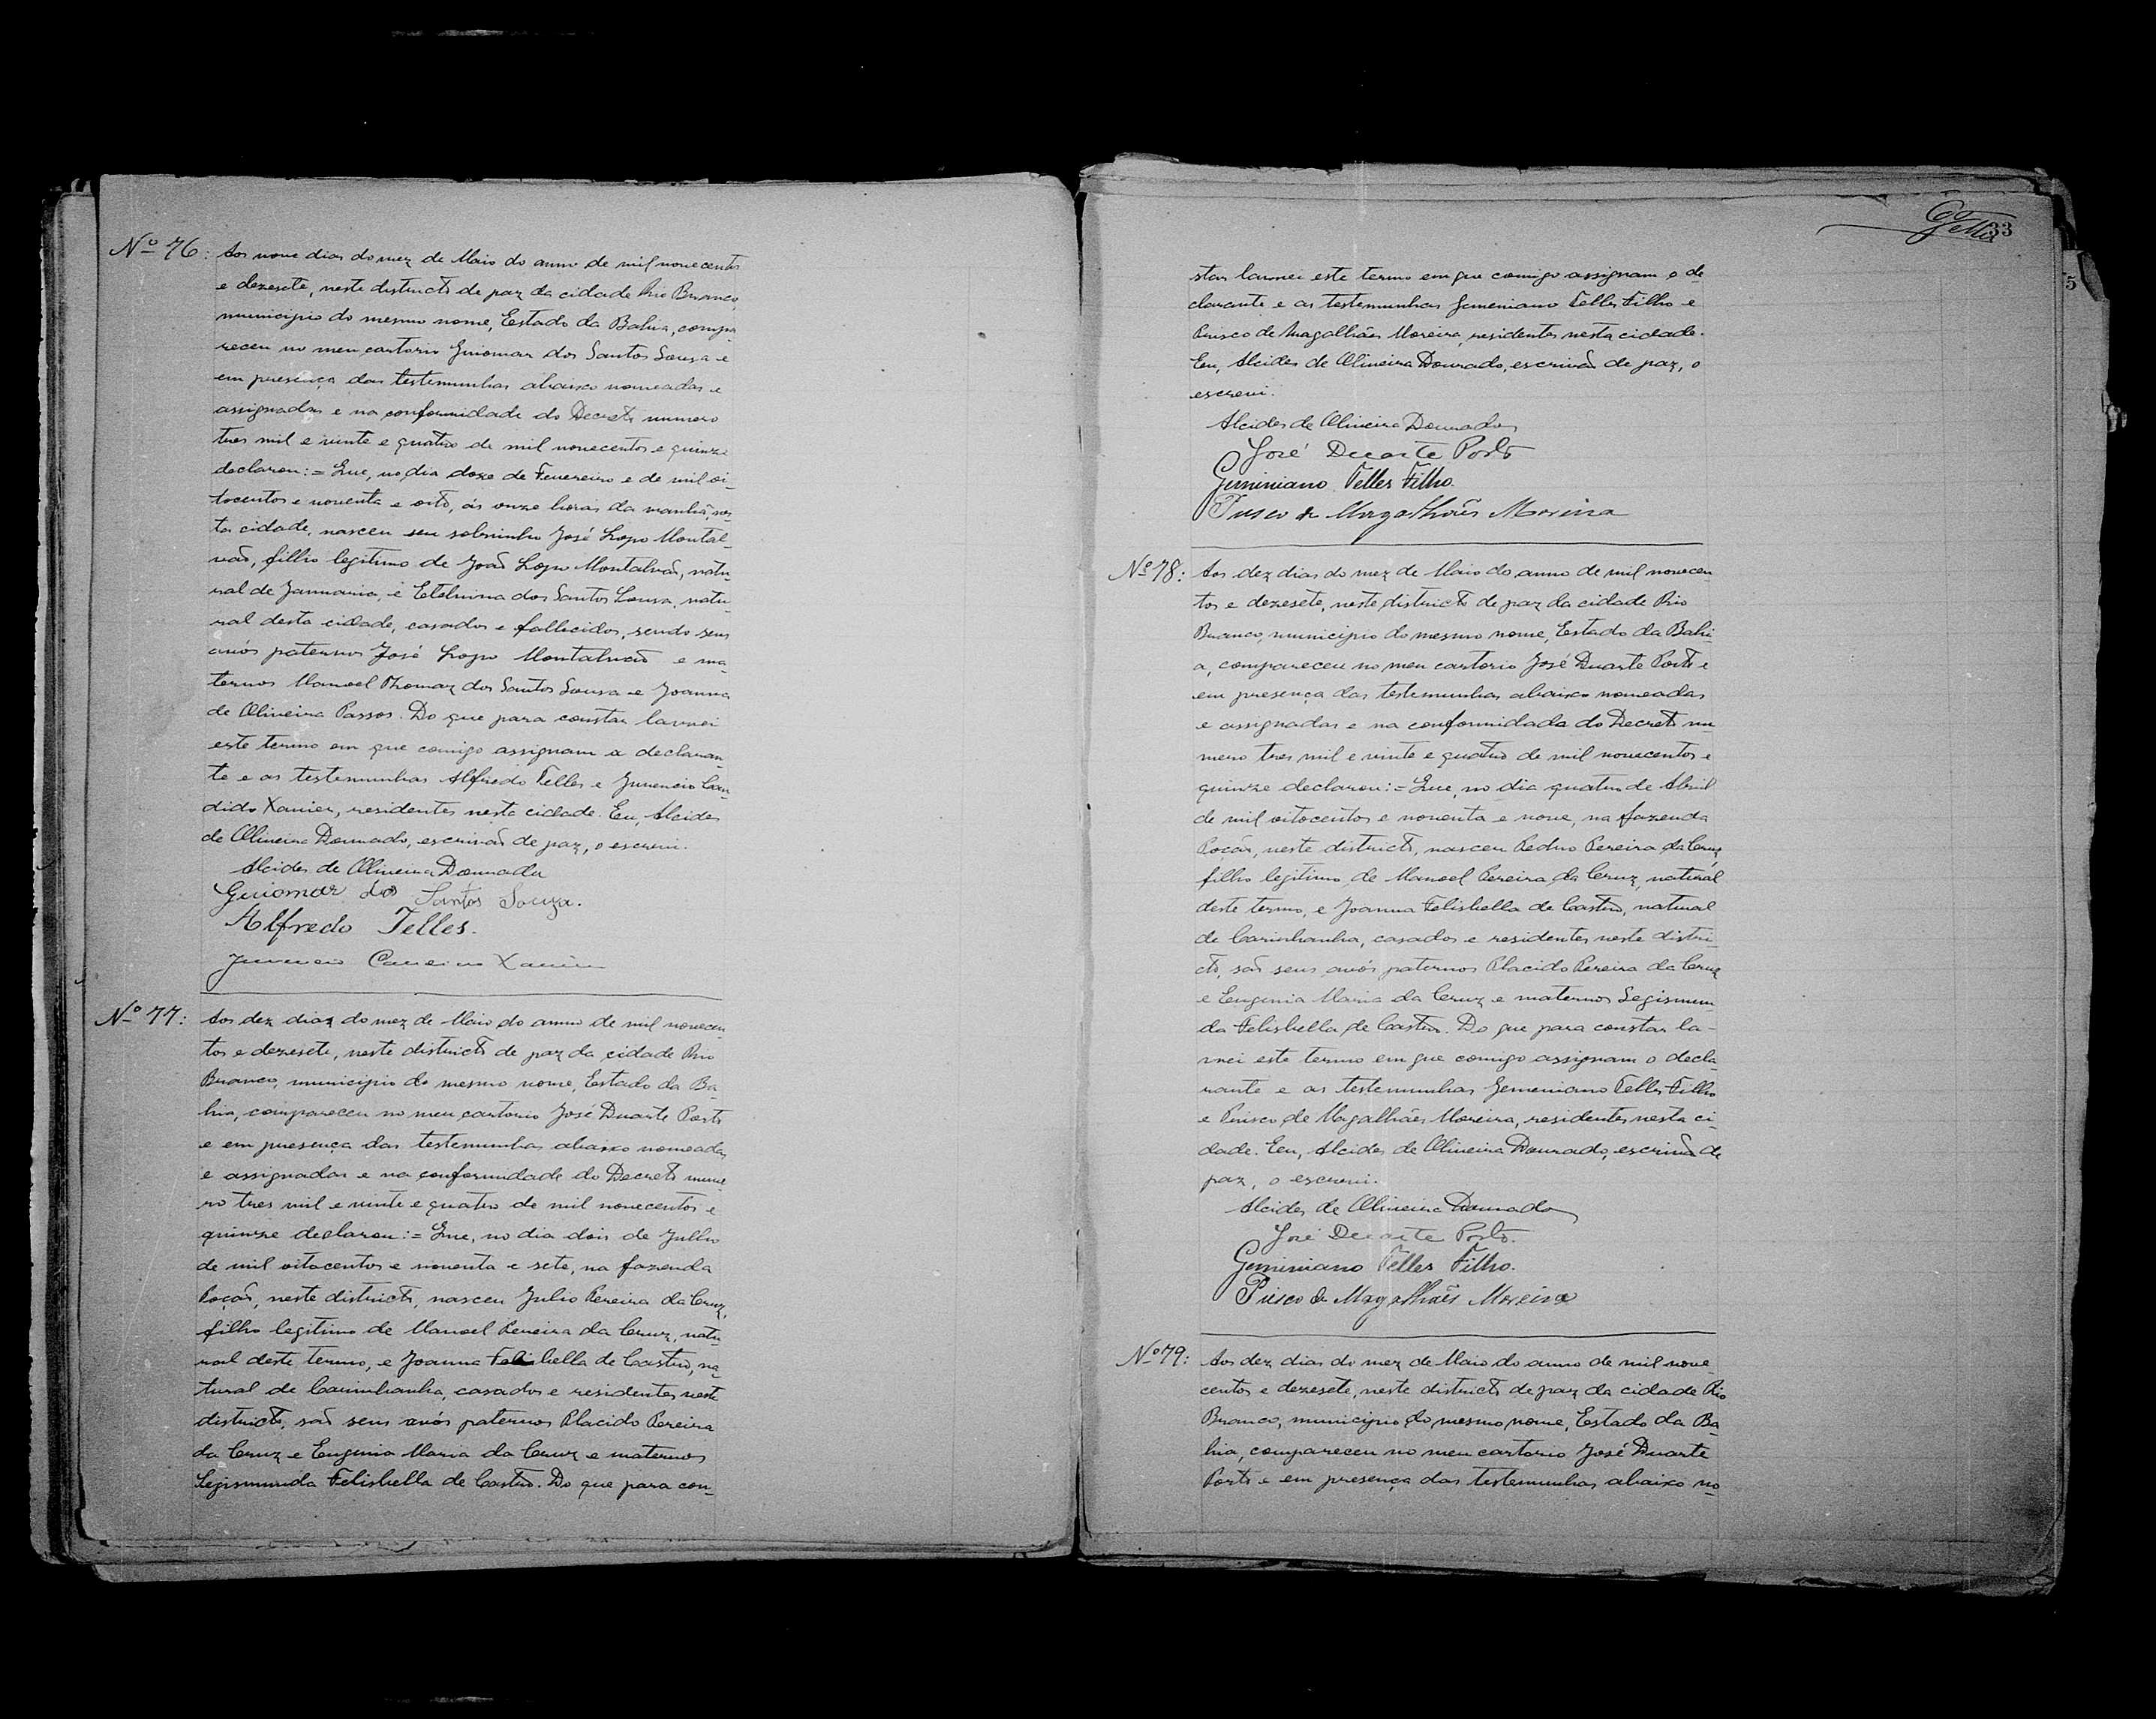 Nº 76: Aos nove dias do mez de Maio do anno de mil novecentos
e dezesete, neste districto de paz da cidade Rio Branco,
municipio do mesmo nome, Estado da Bahia, compa
receu no meu cartorio Guiomar dos Santos Sousa e
em presença das testemunhas abaixo nomeadas e
assignadas e na conformidade do Decreto numero
tres mil e vinte e quatro de mil novecentos e quinze
declarou:= Que, no dia doze de Fevereiro e de mil oi-
tocentos e noventa e oito, ás onze horas da manhã, nes-
ta cidade, nasceu seu sobrinho José Lopo Montal-
vaõ, filho legitimo de Joaõ Lopo Montalvaõ, natu-
ral de Januaria, e Etelvina dos Santos Sousa, natu-
ral desta cidade, casados e fallecidos, sendo seus
avós paternos José Lopo Montalvaõ e ma
ternos Manoel Thomaz dos Santos Sousa e Joanna
de Oliveira Passos. Do que para constar lavrei
este termo em que comigo assignam a declaran-
te e as testemunhas Alfredo Telles e Juvencio Can-
dido Xavier, residentes nesta cidade. Eu, Alcides
de Oliveira Dourado, escrivaõ de paz, o escrevi.
Alcides de Oliveira Dourado
Guiomar dos Santos Souza.
Alfredo Telles.
Juvencio Xavier
Nº 77: Aos dez dias do mez de Maio do anno de mil novecen
tos e dezesete, neste districto de paz da cidade Rio
Branco, municipio do mesmo nome, Estado da Ba-
hia, compareceu no meu cartorio José Duarte Porto
e em presença das testemunhas abaixo nomeadas
e assignadas e na conformidade do Decreto nume
ro tres mil e vinte e quatro de mil novecentos e
quinze declarou:= Que, no dia dois de Julho
de mil oitocentos e noventa e sete, na fazenda
Poçaõ, neste districto, nasceu Julio Pereira da Cruz,
filho legitimo de Manoel Pereira da Cruz, natu
ral deste termo, e Joanna Felisbella de Castro, na
tural de Carinhanha, casados e residentes neste
districto, saõ seus avós paternos Placido Pereira
da Cruz e Eugenia Maria da Cruz e maternos
Segismunda Felisbella de Castro. Do que para con-
33
star lavrei este termo em que comigo assignam o de
clarante e as testemunhas Geminiano Telles Filho e
Prisco de Magalhães Moreira, residentes nesta cidade.
Eu, Alcides de Oliveira Dourado, escrivaõ de paz, o
escrevi.
Alcides de Oliveira Dourado
José Duarte Porto
Geminiano Telles Filho.
Prisco de Magalhães Moreira
Nº 78: Aos dez dias do mez de Maio do anno de mil novecen
tos e dezesete, neste districto de paz da cidade Rio
Branco, municipio do mesmo nome, Estado da Bahi-
a, compareceu no meu cartorio José Duarte Porto e
em presença das testemunhas abaixo nomeadas
e assignadas e na conformidade do Decreto nu
mero tres mil e vinte e quatro de mil novecentos e
quinze declarou:= Que, no dia quatro de Abril
de mil oitocentos e noventa e nove, na fazenda
Poçaõ, neste districto, nasceu Pedro Pereira da Cruz
filho legitimo de Manoel Pereira da Cruz, natural
deste termo, e Joanna Felisbella de Castro, natural
de Carinhanha, casados e residentes neste distri-
cto, saõ seus avós paternos Placido Pereira da Cruz
e Eugenia Maria da Cruz e maternos Segismun
da Felisbella de Castro. Do que para constar la-
vrei este termo em que comigo assignam o decla-
rante e as testemunhas Geminiano Telles Filho
e Prisco de Magalhães Moreira, residentes nesta ci-
dade. Eu, Alcides de Oliveira Dourado, escrivaõ de
paz, o escrevi.
Alcides de Oliveira Dourado
José Duarte Porto.
Geminiano Telles Filho.
Prisco de Magalhães Moreira
Nº 79: Aos dez dias do mez de Maio do anno de mil nove
centos e dezesete, neste districto de paz da cidade Rio
Branco, municipio do mesmo nome, Estado da Ba-
hia, compareceu no meu cartorio José Duarte
Porto e em presença das testemunhas abaixo no